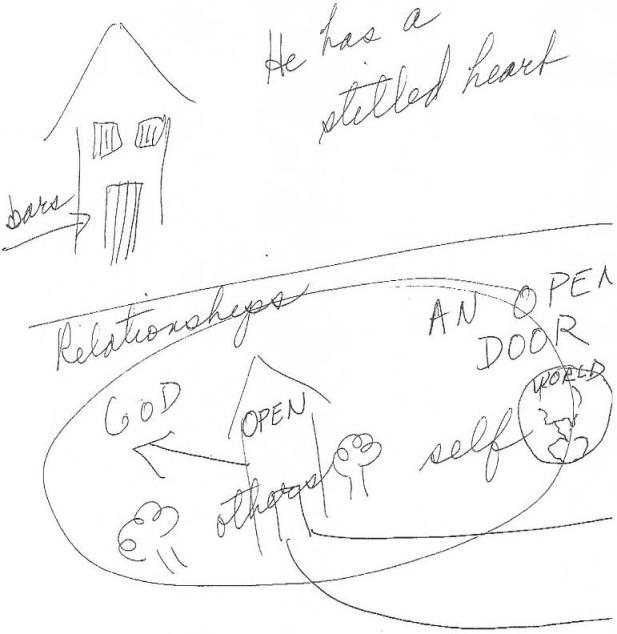 He has a
stilled heart
bars
Relationships
AN OPEN
DOOR
WORLD
GOD
OPEN
self
others